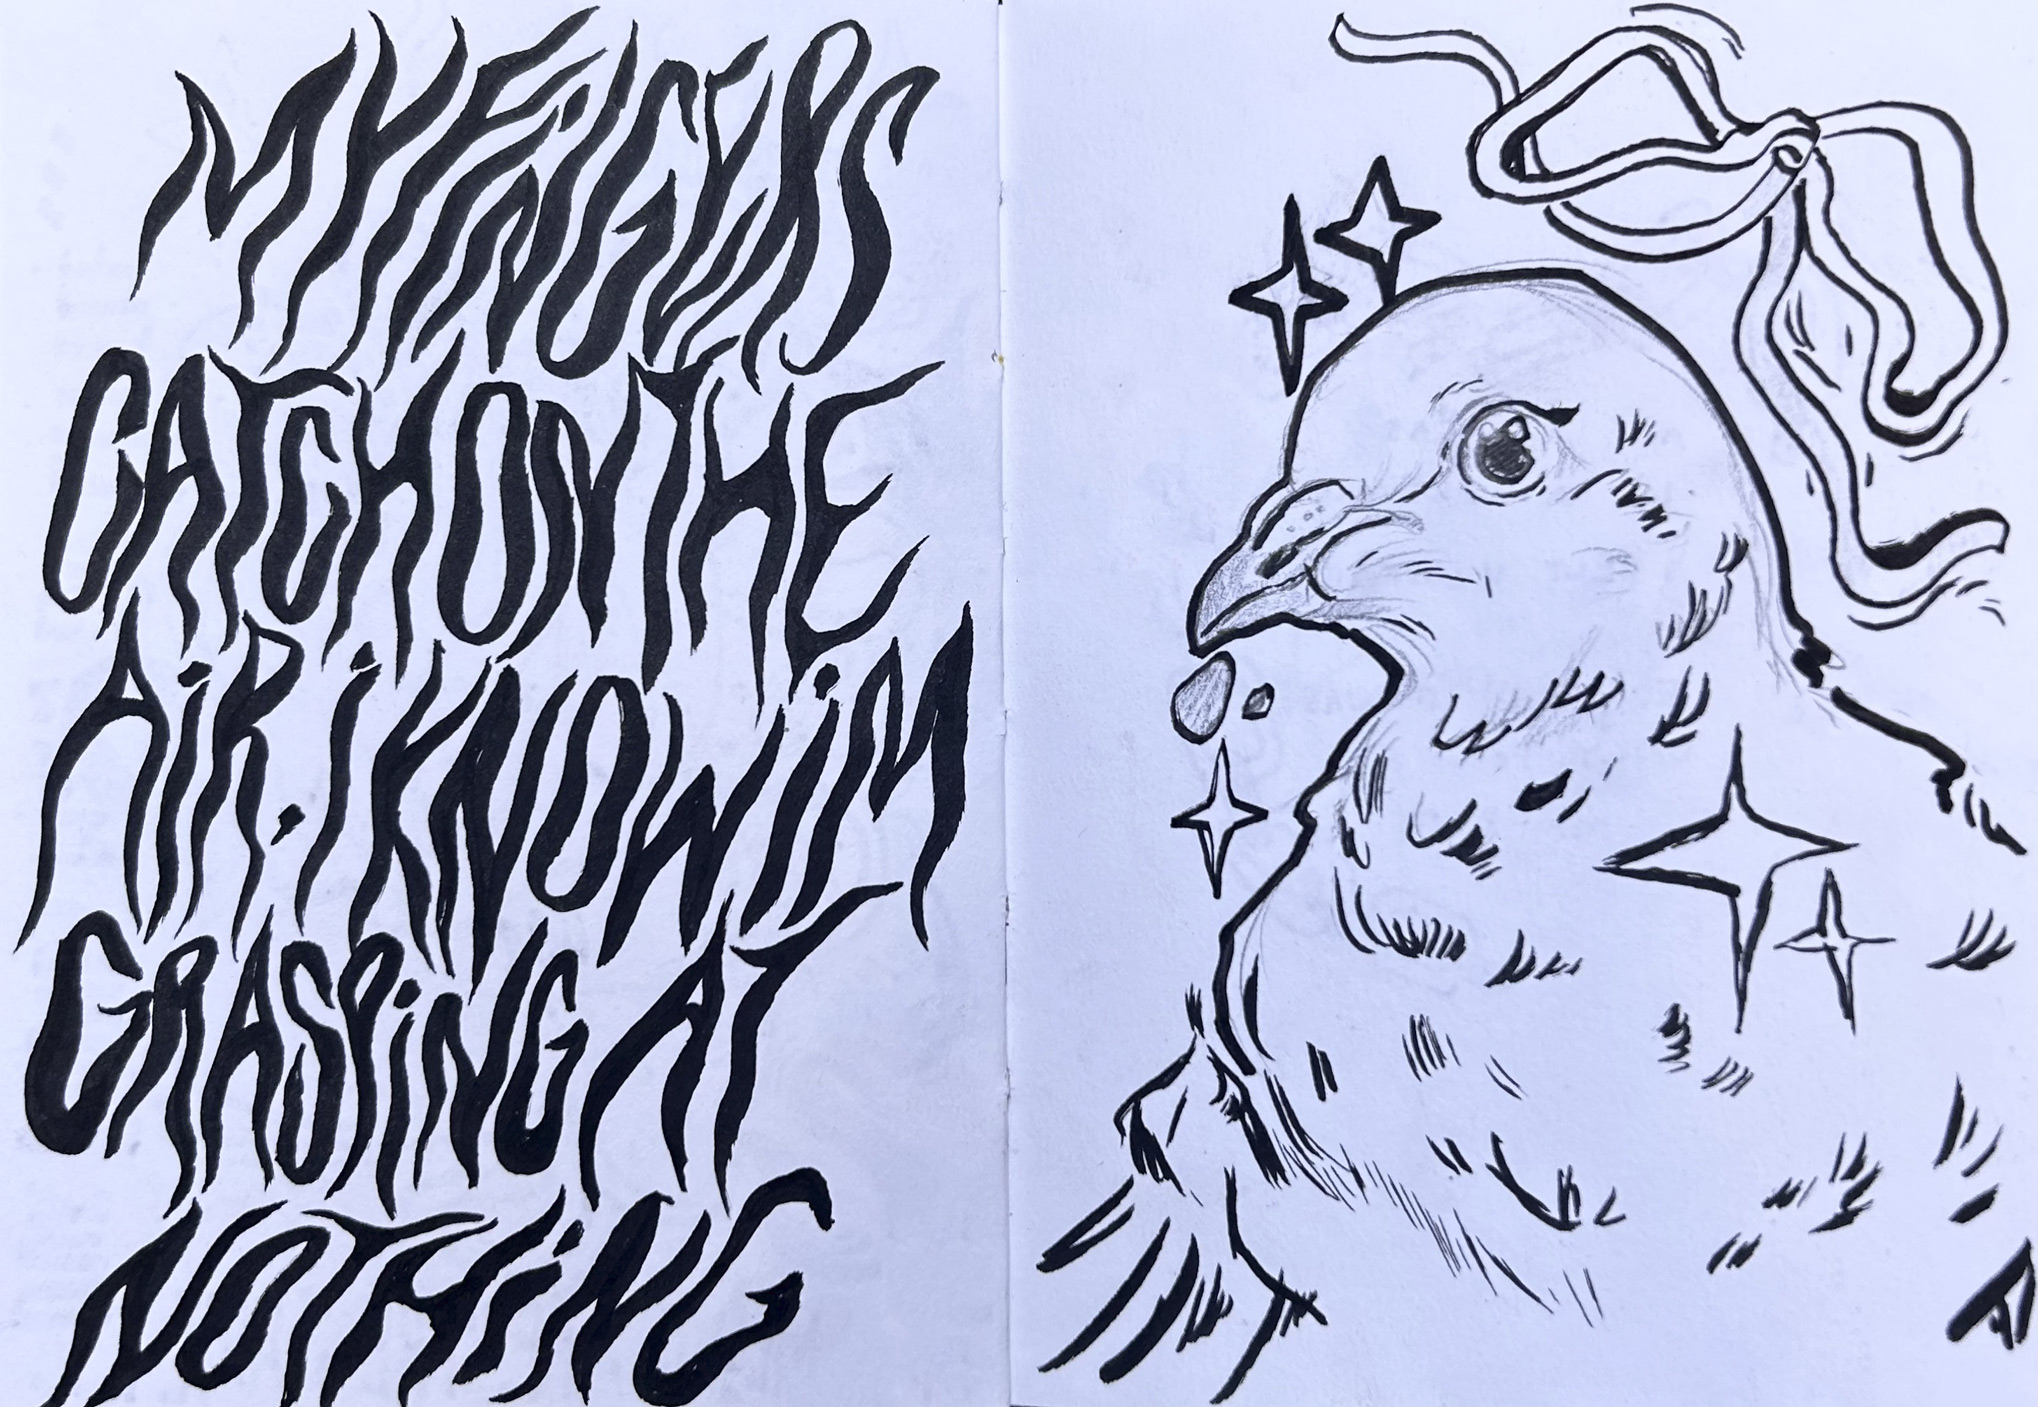 MY FiNGERS
CATCH ON THE
AiR. I KNOW iM
GRASPiNG AT
NOTHiNG